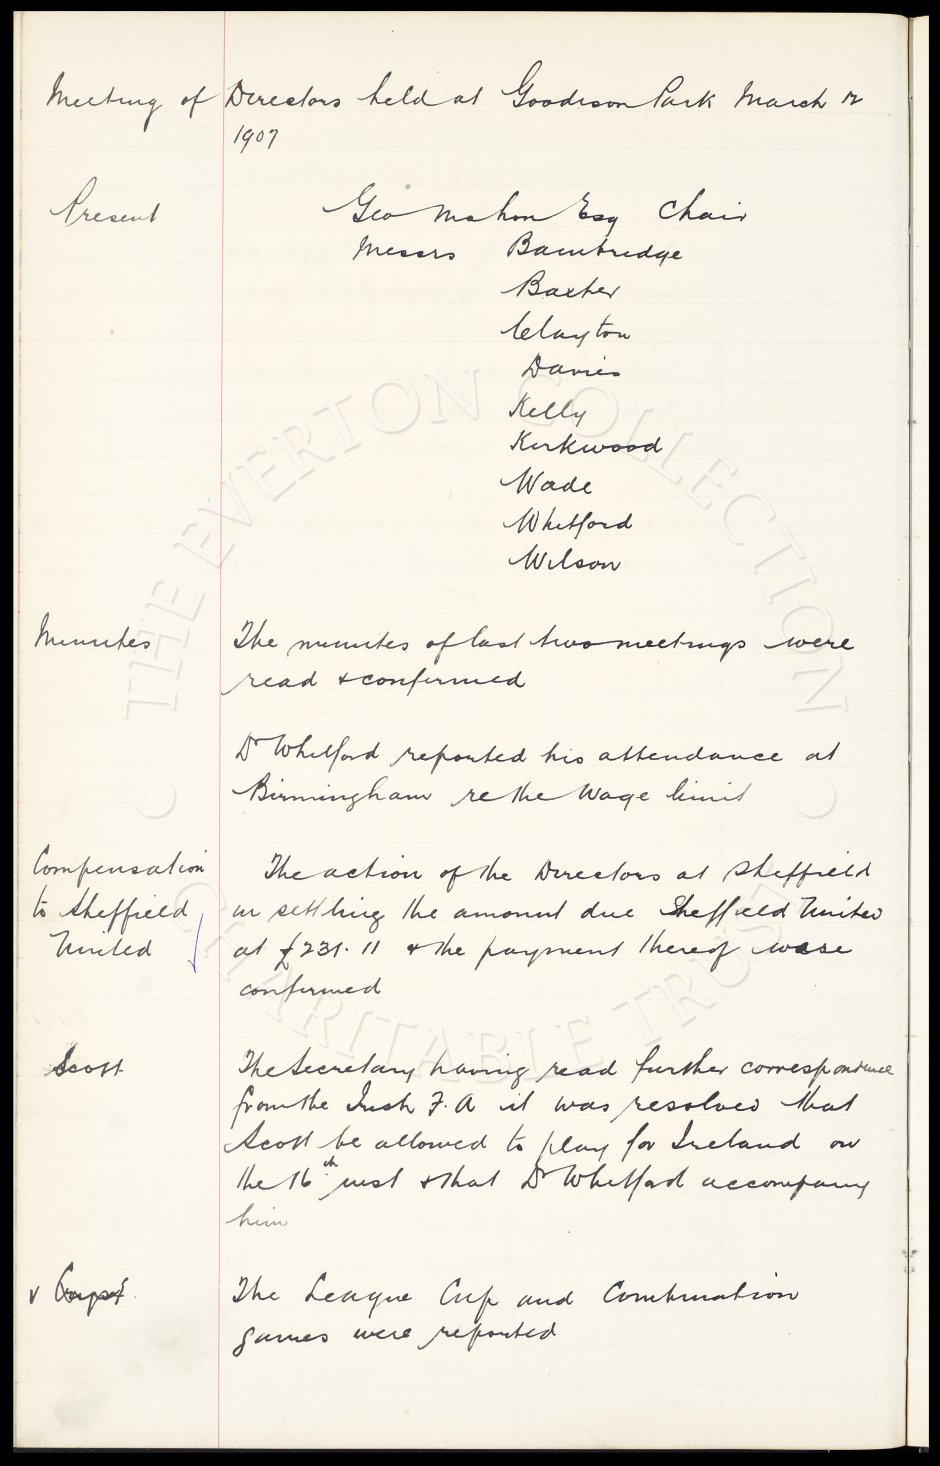 Meeting of Directors held at Goodison Park March 12
1907
Present Geo Mahon Esq Chair
Messrs Bainbridge
Baxter
Clayton
Davies
Kelly
Kirkwood
Wade
Whitford
Wilson
Minutes The minutes of last two meetings were
read & confirmed
Dr Whitford reported his attendance at
Birmingham re the Wage limit
Compensation The action of the Directors at Sheffield
to Sheffield in settling the amount due Sheffield United
United at £231. 11 & the payment thereof was
confirmed
Scott The Secretary having read further correspondence
from the Irish F.A it was resolved that
Scott be allowed to play for Ireland on
the 16th inst & that Dr Whitford accompany
him
The League Cup and Combination
games were reported
THE EVERTON COLLECTION
CHARITABLE TRUST